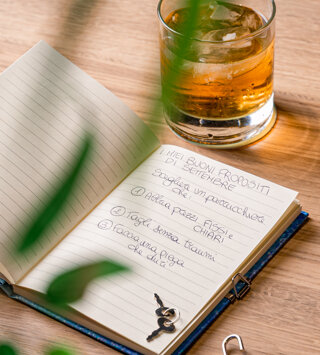 I MIEI BUONI PROPOSITI
DI SETTEMBRE
Scegliere un parrucchiere
che:
① Abbia prezzi FISSI e
CHIARI
② Tagli senza traumi
③ Faccia una piega
che duri